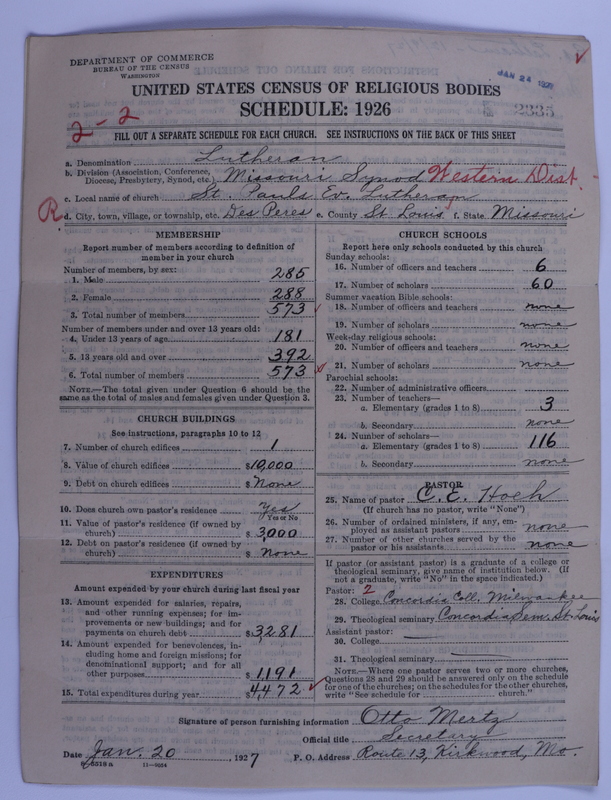 DEPARTMENT OF COMMERCE
BUREAU OF THE CENSUS
WASHINGTON
JAN 24 1927
UNITED STATES CENSUS OF RELIGIOUS BODIES
SCHEDULE: 1926
2335
2-2
FILL OUT A SEPARATE SCHEDULE FOR EACH CHURCH. SEE INSTRUCTIONS ON THE BACK OF THIS SHEET
a. Denomination Lutheran
b. Division (Association, Conference, Diocese, Presbytery, Synod, etc.) Missouri Synod Western Dist.
c. Local name of church St. Pauls Ev. Lutheran
R d. City, town, village, or township, etc. Des Peres e. County St. Louis f. State Missouri
MEMBERSHIP
Report number of members according to definition of
member in your church
Number of members, by sex:
1. Male 285
2. Female 288
3. Total number of members 573
Number of members under and over 13 years old:
4. Under 13 years of age 181
5. 13 years old and over 392
6. Total number of members 573
NOTE.—The total given under Question 6 should be the
same as the total of males and females given under Question 3.
CHURCH BUILDINGS
See instructions, paragraphs 10 to 12
7. Number of church edifices 1
8. Value of church edifices $10,000
9. Debt on church edifices $ None
10. Does church own pastor's residence Yes
Yes or No
11. Value of pastor's residence (if owned by
church) $ 3,000
12. Debt on pastor's residence (if owned by
church) $ None
EXPENDITURES
Amount expended by your church during last fiscal year
13. Amount expended for salaries, repairs,
and other running expenses; for im-
provements or new buildings; and for
payments on church debt $3281
14. Amount expended for benevolences, in-
cluding home and foreign missions; for
denominational support; and for all
other purposes $1,191
15. Total expenditures during year $4,472
CHURCH SCHOOLS
Report here only schools conducted by this church
Sunday schools:
16. Number of officers and teachers 6
17. Number of scholars 60
Summer vacation Bible schools:
18. Number of officers and teachers none
19. Number of scholars none
Week-day religious schools:
20. Number of officers and teachers none
21. Number of scholars none
Parochial schools:
22. Number of administrative officers
23. Number of teachers—
a. Elementary (grades 1 to 8) 3
b. Secondary none
24. Number of scholars—
a. Elementary (grades 1 to 8) 116
b. Secondary none
PASTOR
25. Name of pastor C. E. Hoeh
(If church has no pastor, write "None")
26. Number of ordained ministers, if any, em-
ployed as assistant pastors none
27. Number of other churches served by the
pastor or his assistants none
If pastor (or assistant pastor) is a graduate of a college or
theological seminary, give name of institution below. (If
not a graduate, write "No" in the space indicated.)
Pastor: 2
28. College Concordia Coll. Milwaukee
29. Theological seminary Concordia Sem. St. Louis
Assistant pastor:
30. College
31. Theological seminary
NOTE.—Where one pastor serves two or more churches,
Questions 28 and 29 should be answered only on the schedule
for one of the churches; on the schedules for the other churches,
write "See schedule for church."
Signature of person furnishing information Otto Mertz
Official title Secretary
Date Jan. 20, 1927 P. O. Address Route 13, Kirkwood, Mo.
8-5518a 11-9054